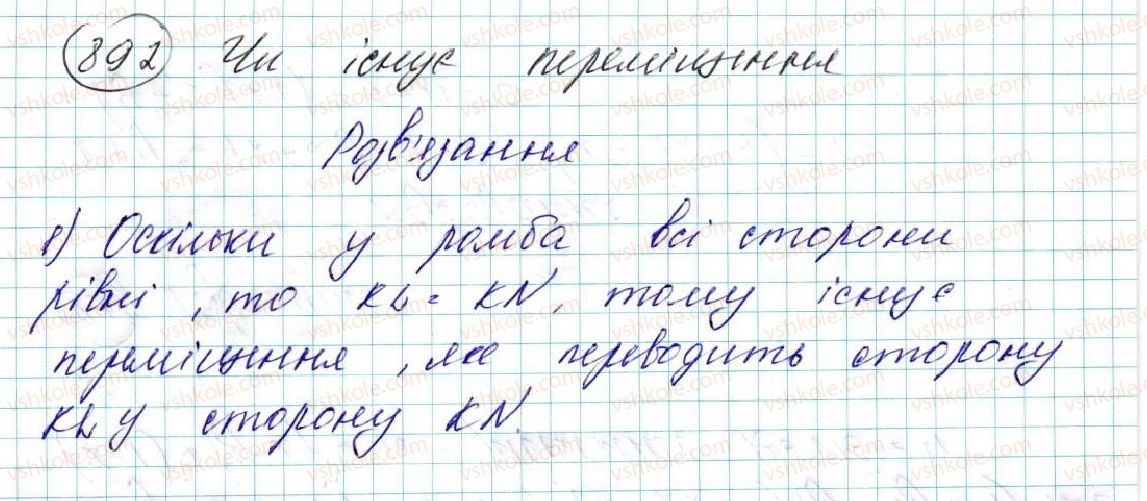 892 Чи існує переміщення
Розв'язання
1) Оскільки у ромба всі сторони
рівні, то KL = KN, тому існує
переміщення, яке переводить сторону
KL у сторону KN.
vshkole.com